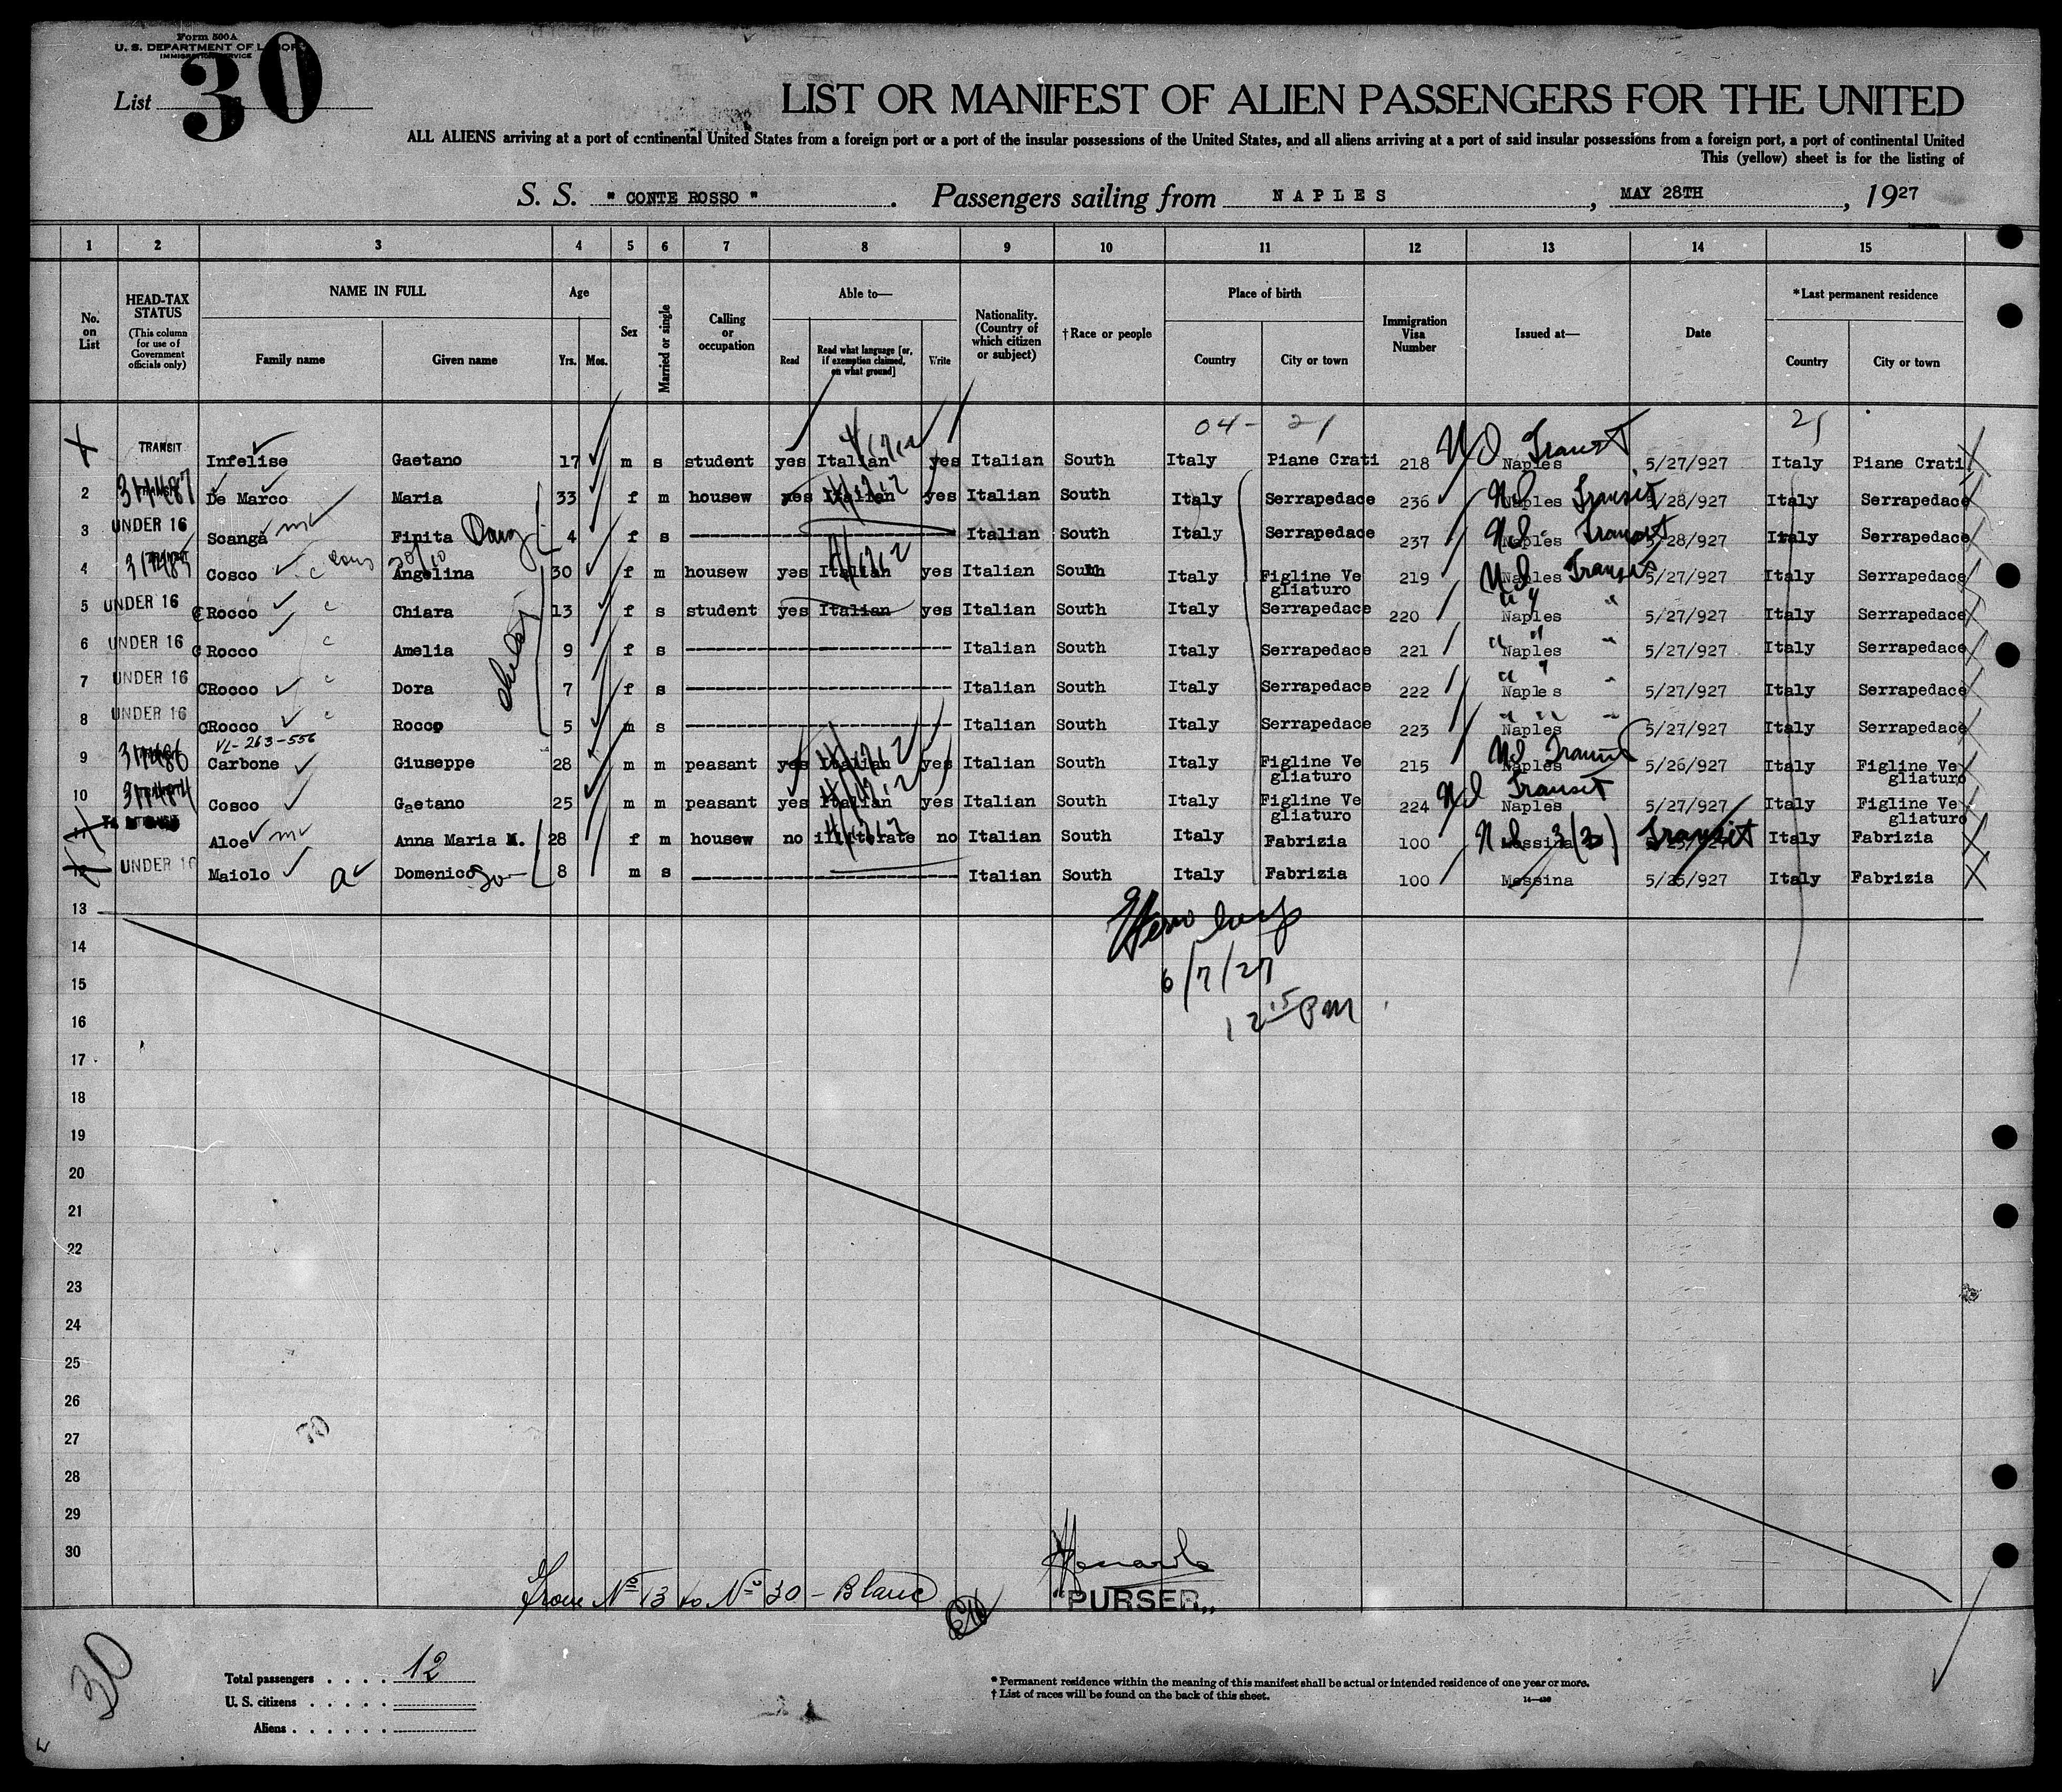 Form 500A
U. S. DEPARTMENT OF LABOR
IMMIGRATION SERVICE
List 30
LIST OR MANIFEST OF ALIEN PASSENGERS FOR THE UNITED
ALL ALIENS arriving at a port of continental United States from a foreign port or a port of the insular possessions of the United States, and all aliens arriving at a port of said insular possessions from a foreign port, a port of continental United
This (yellow) sheet is for the listing of
S. S. " CONTE ROSSO " . Passengers sailing from NAPLES , MAY 28TH , 1927
1 2 3 4 5 6 7 8 9 10 11 12 13 14 15
No. on List
HEAD-TAX STATUS (This column for use of Government officials only)
NAME IN FULL
Family name Given name
Age
Yrs. Mos.
Sex
Married or single
Calling or occupation
Able to—
Read Read what language [or, if exemption claimed, on what ground] Write
Nationality. (Country of which citizen or subject)
†Race or people
Place of birth
Country City or town
Immigration Visa Number
Issued at—
Date
*Last permanent residence
Country City or town
04- 21 21
TRANSIT Infelise Gaetano 17 m s student yes Italian yes Italian South Italy Piane Crati 218 Naples Transit 5/27/927 Italy Piane Crati
2 De Marco Maria 33 f m housew yes Italian yes Italian South Italy Serrapedace 236 Naples Transit 5/28/927 Italy Serrapedace
3 UNDER 16 Scanga Finita 4 f s Italian South Italy Serrapedace 237 Naples Transit 5/28/927 Italy Serrapedace
4 Cosco Angelina 30 f m housew yes Italian yes Italian South Italy Figline Ve gliaturo 219 Naples Transit 5/27/927 Italy Serrapedace
5 UNDER 16 Rocco Chiara 13 f s student yes Italian yes Italian South Italy Serrapedace 220 Naples " 5/27/927 Italy Serrapedace
6 UNDER 16 Rocco Amelia 9 f s Italian South Italy Serrapedace 221 Naples " 5/27/927 Italy Serrapedace
7 UNDER 16 CRocco Dora 7 f s Italian South Italy Serrapedace 222 Naples " 5/27/927 Italy Serrapedace
8 UNDER 16 CRocco Rocco 5 m s Italian South Italy Serrapedace 223 Naples " 5/27/927 Italy Serrapedace
VL-263-556
9 Carbone Giuseppe 28 m m peasant yes Italian yes Italian South Italy Figline Ve gliaturo 215 Naples Transit 5/26/927 Italy Figline Ve gliaturo
10 Cosco Gaetano 25 m m peasant yes Italian yes Italian South Italy Figline Ve gliaturo 224 Naples Transit 5/27/927 Italy Figline Ve gliaturo
11 Aloe Anna Maria M. 28 f m housew no illiterate no Italian South Italy Fabrizia 100 Messina Transit Italy Fabrizia
12 UNDER 16 Maiolo Domenico 8 m s Italian South Italy Fabrizia 100 Messina 5/25/927 Italy Fabrizia
13
14
6/7/27
15
12 15 PM
16
17
18
19
20
21
22
23
24
25
26
27
28
29
30
From Nº 13 to Nº 30 - Blanc
"PURSER"
30
Total passengers . . . . 12
U. S. citizens . . . . .
Aliens . . . . . .
* Permanent residence within the meaning of this manifest shall be actual or intended residence of one year or more.
† List of races will be found on the back of this sheet.